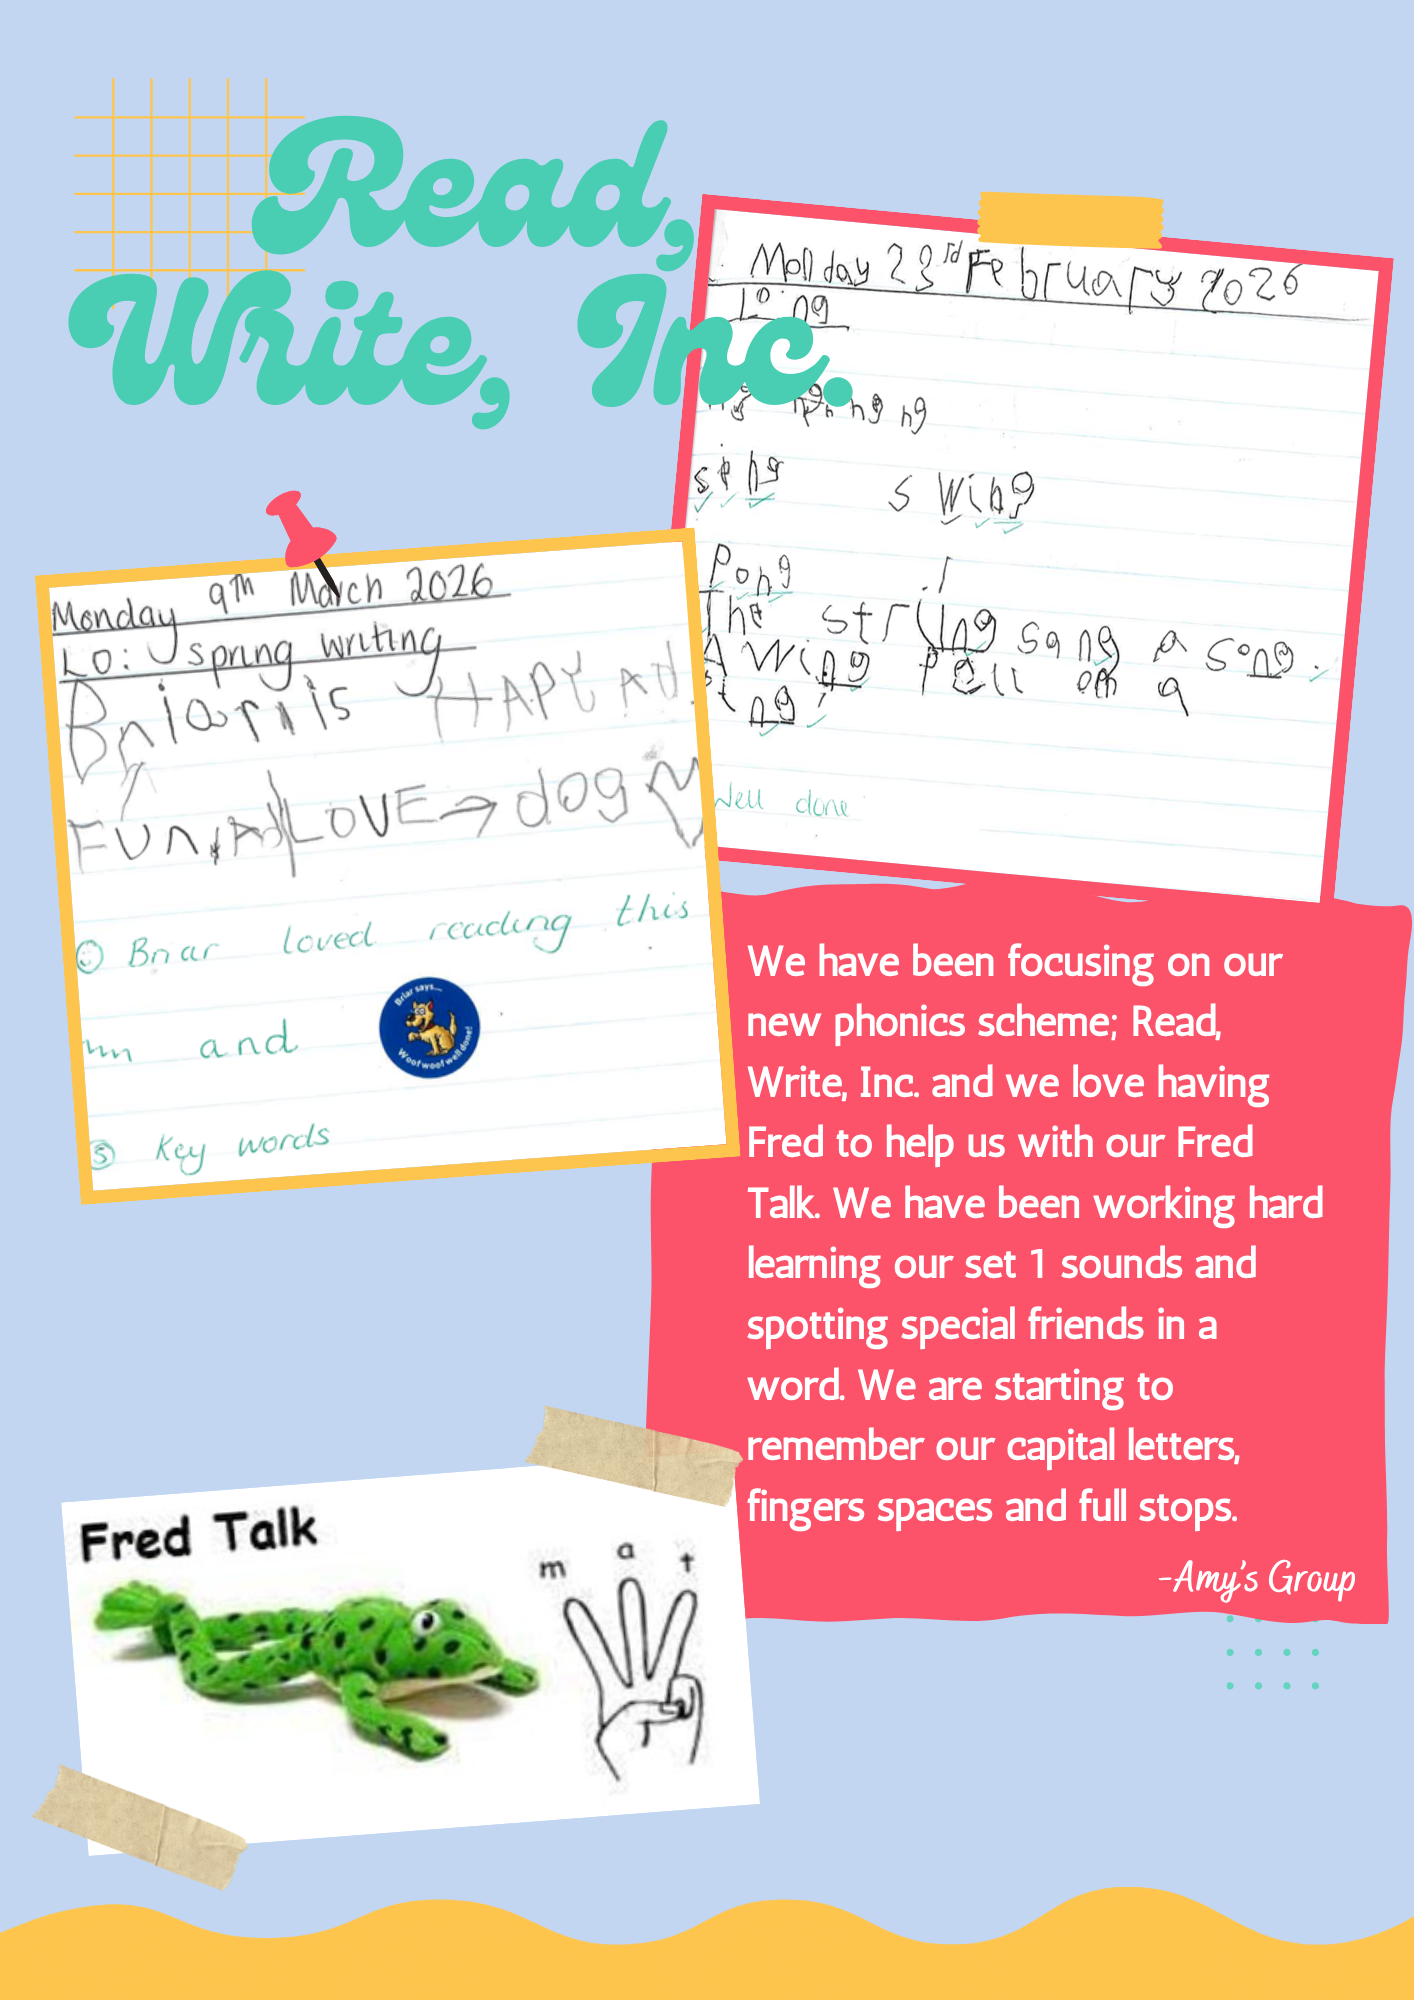 Read,
Write, Inc.
Monday 23rd February 2026
Lo: ng
ng ng ng
sing swing
Pong
The string sang a song.
A Wing Fell on a
Well done
Monday 9th March 2026
LO: spring writing
Briar is HAPY
FUN, LOVE → dog
Briar loved reading this
and
Briar says...
Woof woof well done!
Key words
We have been focusing on our
new phonics scheme; Read,
Write, Inc. and we love having
Fred to help us with our Fred
Talk. We have been working hard
learning our set 1 sounds and
spotting special friends in a
word. We are starting to
remember our capital letters,
fingers spaces and full stops.
-Amy's Group
Fred Talk
m a t